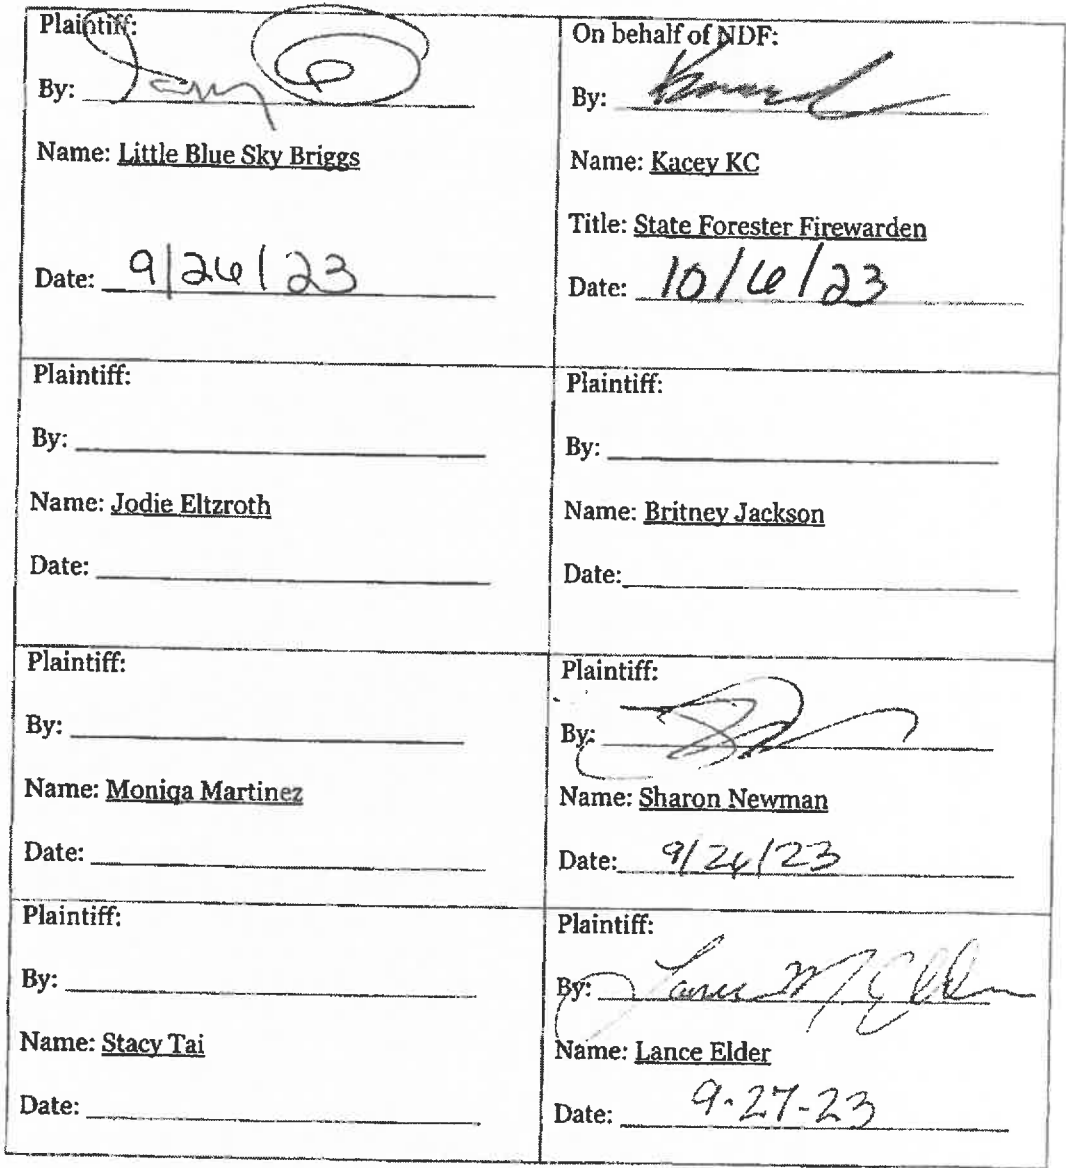 Plaintiff:
By:
Name: Little Blue Sky Briggs
Date: 9/26/23
On behalf of NDF:
By:
Name: Kacey KC
Title: State Forester Firewarden
Date: 10/6/23
Plaintiff:
By:
Name: Jodie Eltzroth
Date:
Plaintiff:
By:
Name: Britney Jackson
Date:
Plaintiff:
By:
Name: Moniqa Martinez
Date:
Plaintiff:
By:
Name: Sharon Newman
Date: 9/26/23
Plaintiff:
By:
Name: Stacy Tai
Date:
Plaintiff:
By: Lance M Elder
Name: Lance Elder
Date: 9-27-23